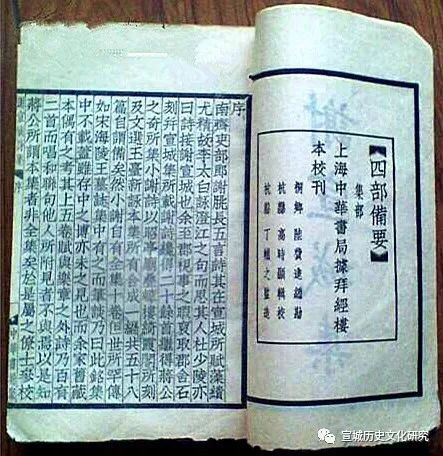 【四部備要】
集部
上海中華書局據拜經樓
本校刊
桐鄉 陸費逵 總勘
杭縣 高時顯 輯校
杭縣 丁輔之 監造
序
南齊吏部郎謝朓長五言詩其在宣城所賦藻繢
尤精故李太白詠澄江之句而思其人杜少陵亦
曰詩接謝宣城也余至郡視事之暇裒取郡舍石
刻并宣城集所載謝詩纔得二十餘首繼得蔣公
之奇所集小謝詩以昭亭廟疊嶂樓綺霞閣所刻
及文選玉臺新詠本集所有合成一編共五十八
篇自謂備矣然小謝自有全集十卷但世所罕傳
如宋海陵王墓誌集中有之而筆談乃曰此銘集
中不載蓋雖存中之博亦未之見也而余家舊藏
本偶有之考其上五卷賦與樂章之外詩乃百有
二首而唱和聯句他人所附見者不與焉以是知
蔣公所謂本集者非全集矣於是屬之僚士參校
宣城历史文化研究